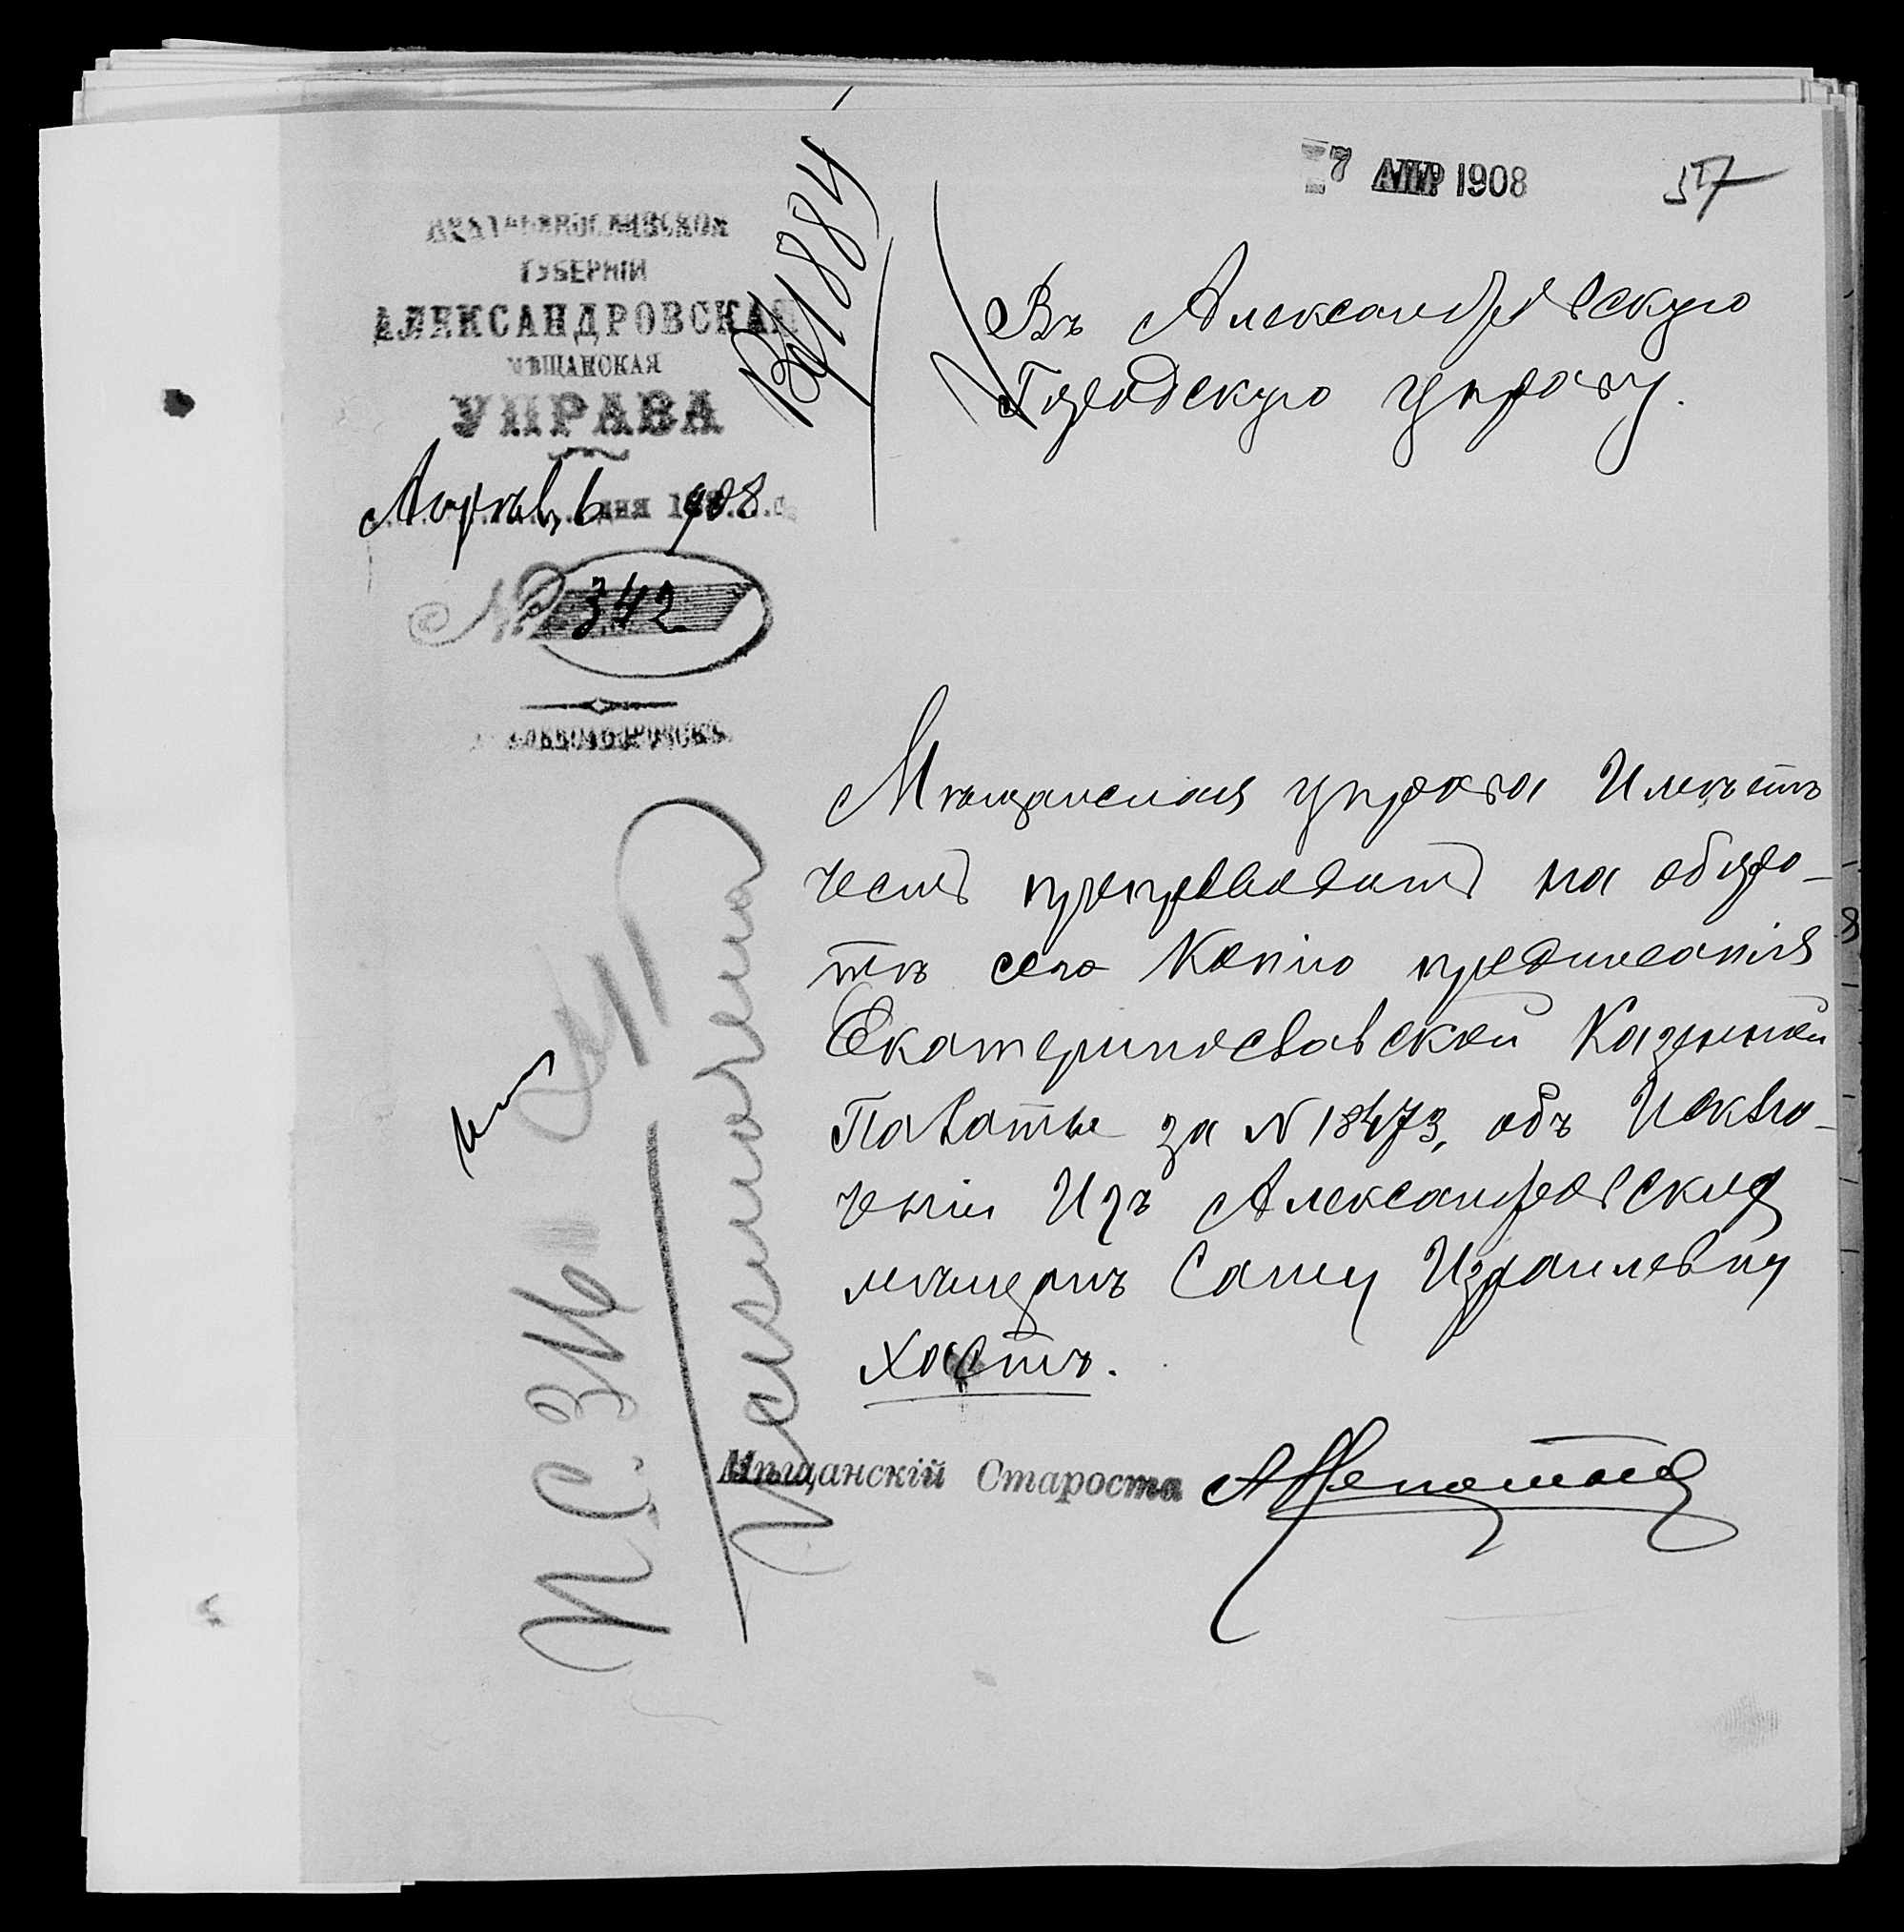 7 АПР 1908
57
ЕКАТЕРИНОСЛАВСКОЙ
ГУБЕРНІИ
АЛЕКСАНДРОВСКАЯ
МѢЩАНСКАЯ
УПРАВА
Апрѣль 6 дня 1908 г.
№ 342
АЛЕКСАНДРОВСКЪ
Вх 1884
Въ Александровскую
Городскую управу.
Мѣщанская управа Имѣетъ
честь препроводить на оборо-
тѣ сего копію предписанія
Екатеринославской Казенной
Палаты за № 18473, объ Исклю-
ченіи Изъ Александровскихъ
мѣщанъ Сашу Израилевну
Хастъ.
Мѣщанскій Староста